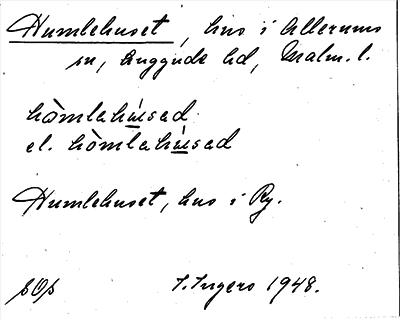 Humlehuset, hus i Allerums
sn, Luggude hd, Malm. l.
hòmlahúsad
el. hòmlahúsad
Humlehuset, hus i Ry.
SOs I. Ingers 1948.